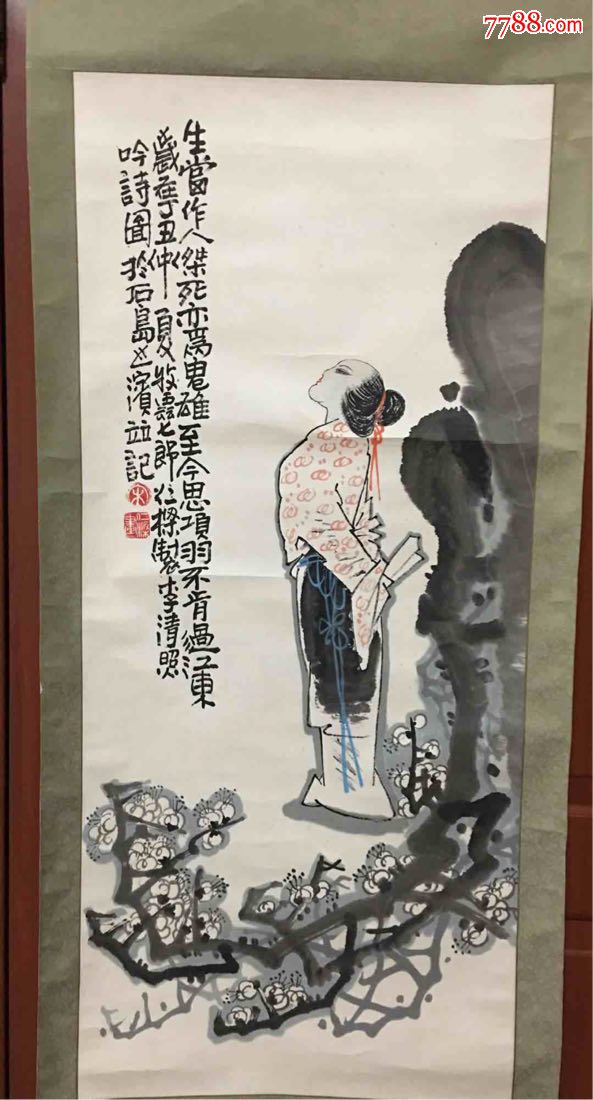 7788.com
生當作人傑死亦為鬼雄至今思項羽不肯過江東
歲在丁丑仲夏牧驫七郎仁樑製李清照
吟詩圖於石島之濱並記